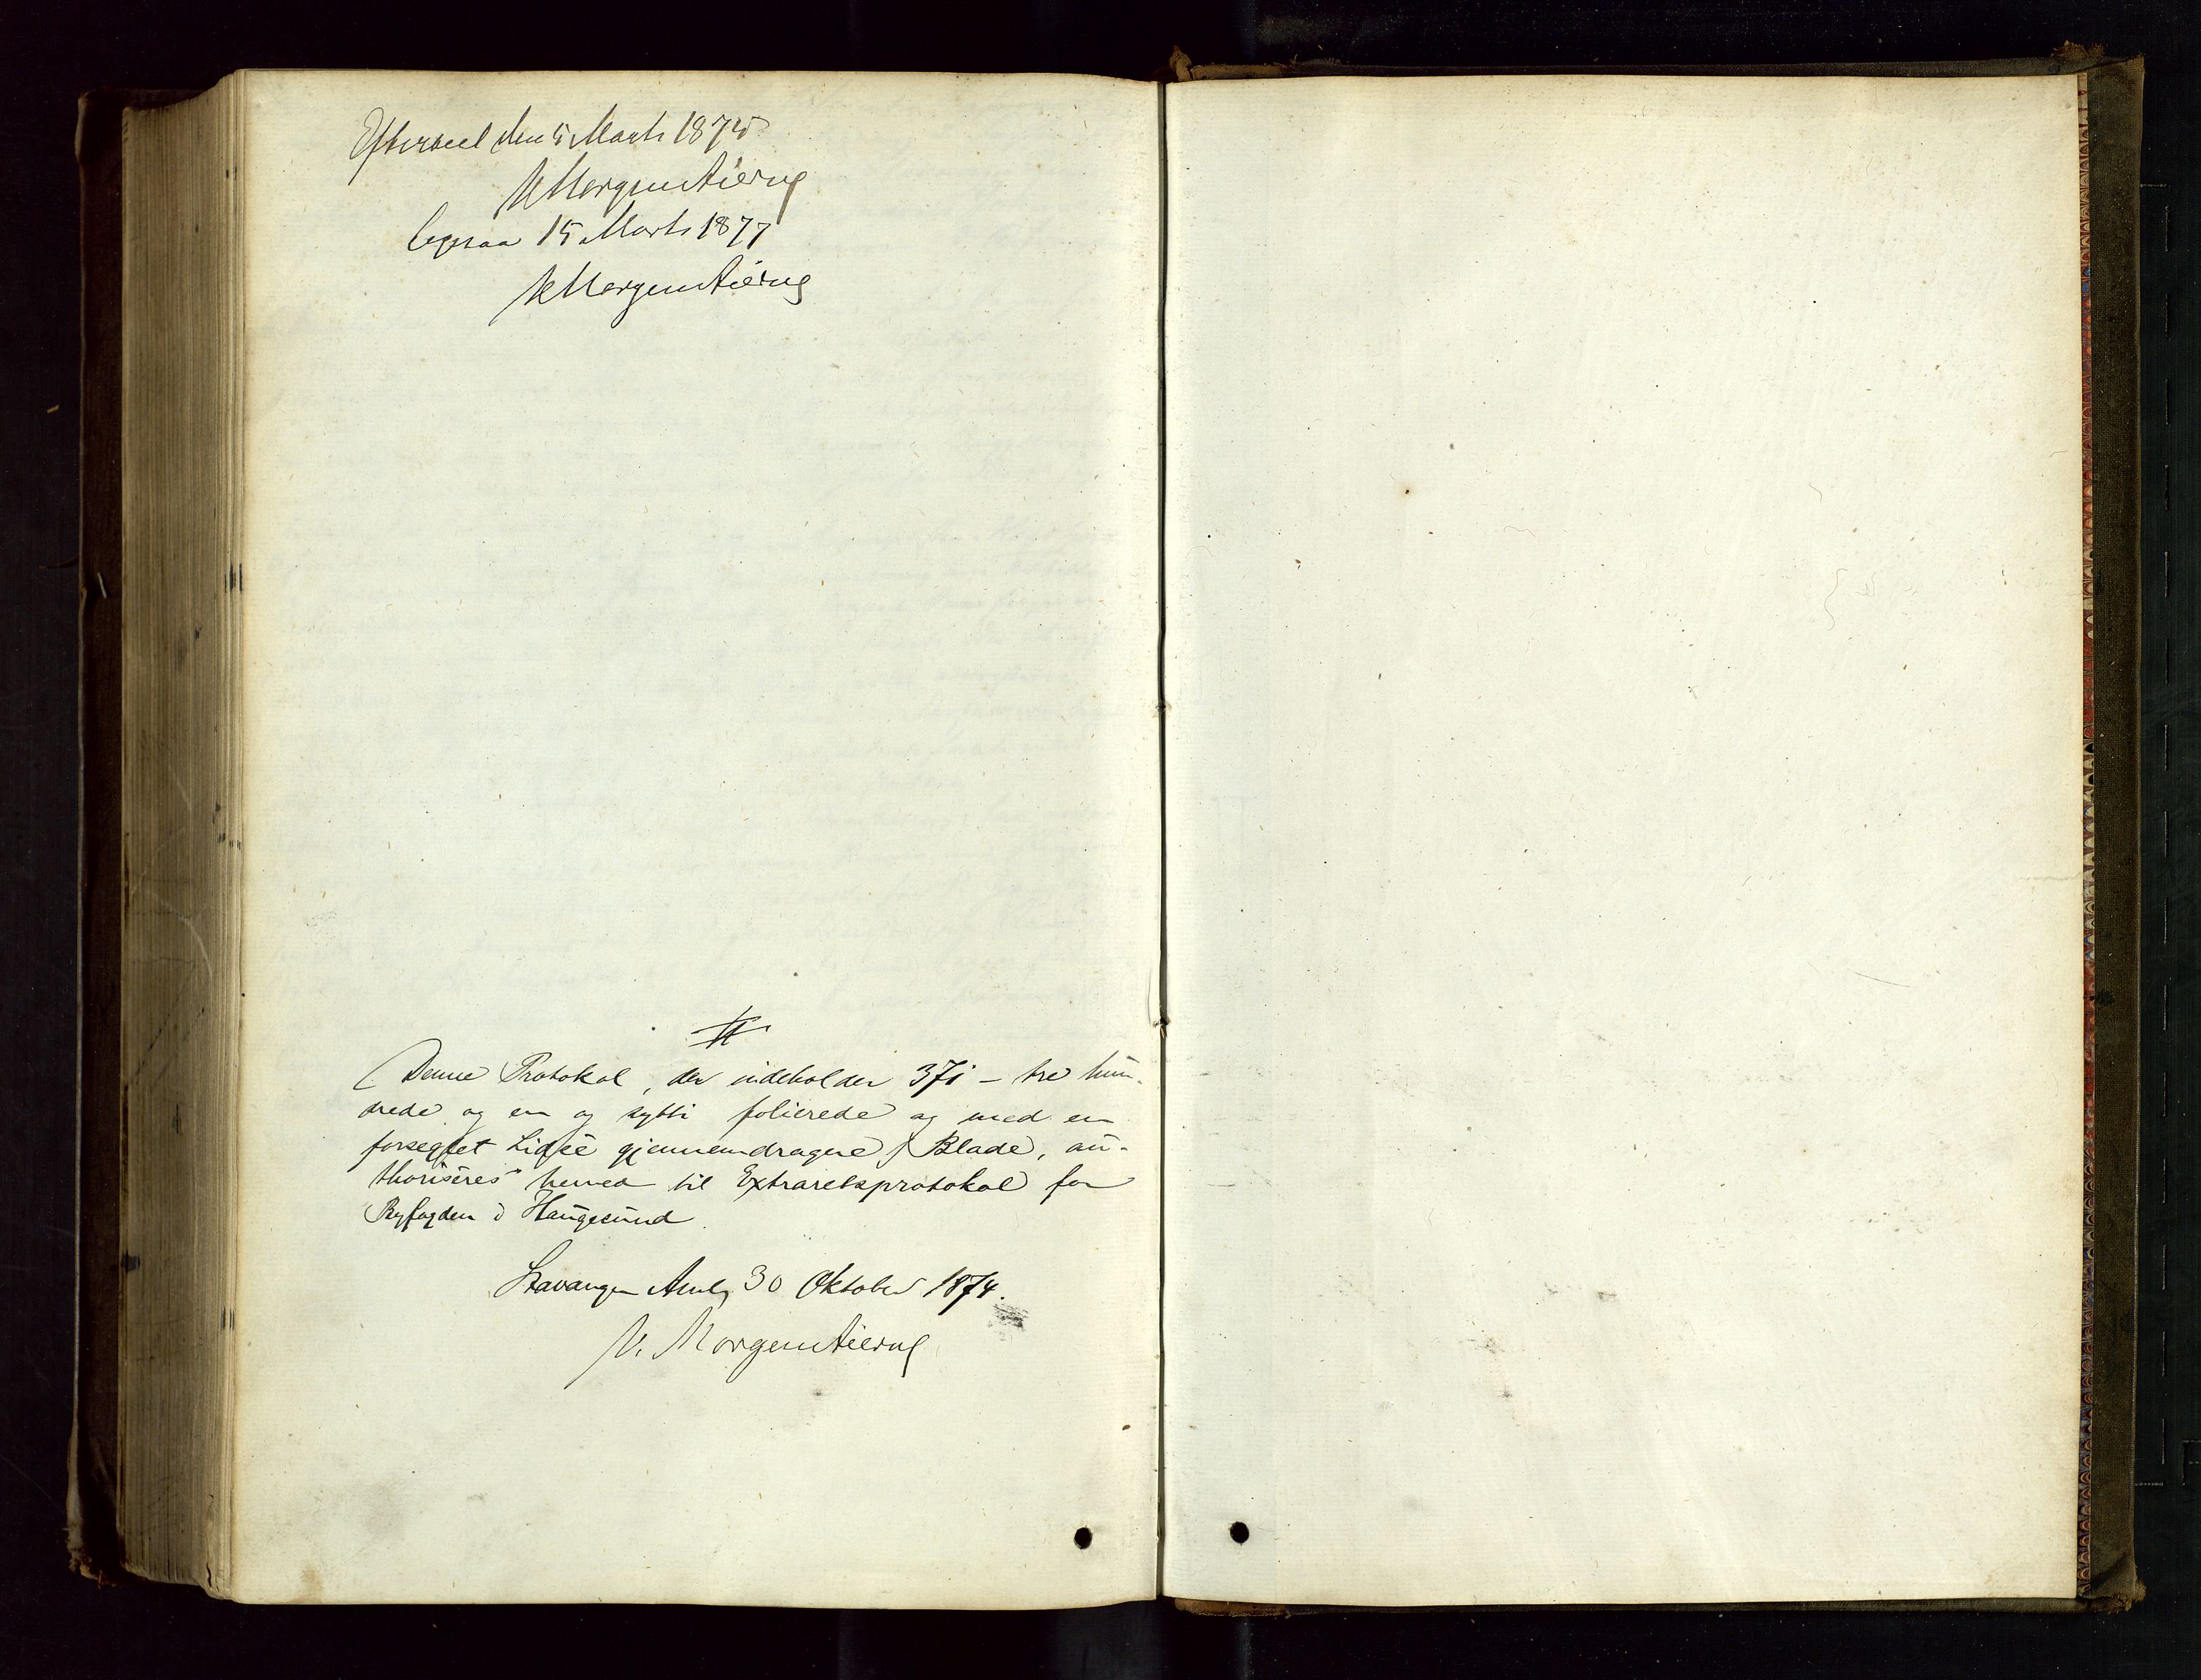 Efterseet den 5 Marts 1875
VMorgenstierne
ligesaa 15 Marts 1877
VMorgenstierne
Denne Protokol, der indeholder 371 – tre hun-
drede og en og sytti folierede og med en
forseglet Lidse gjennemdragne Blade, au-
thoriseres herved til Extraretsprotokol for
Byfogden i Haugesund.
Stavanger Amt, 30 Oktober 1874.
V. Morgenstierne